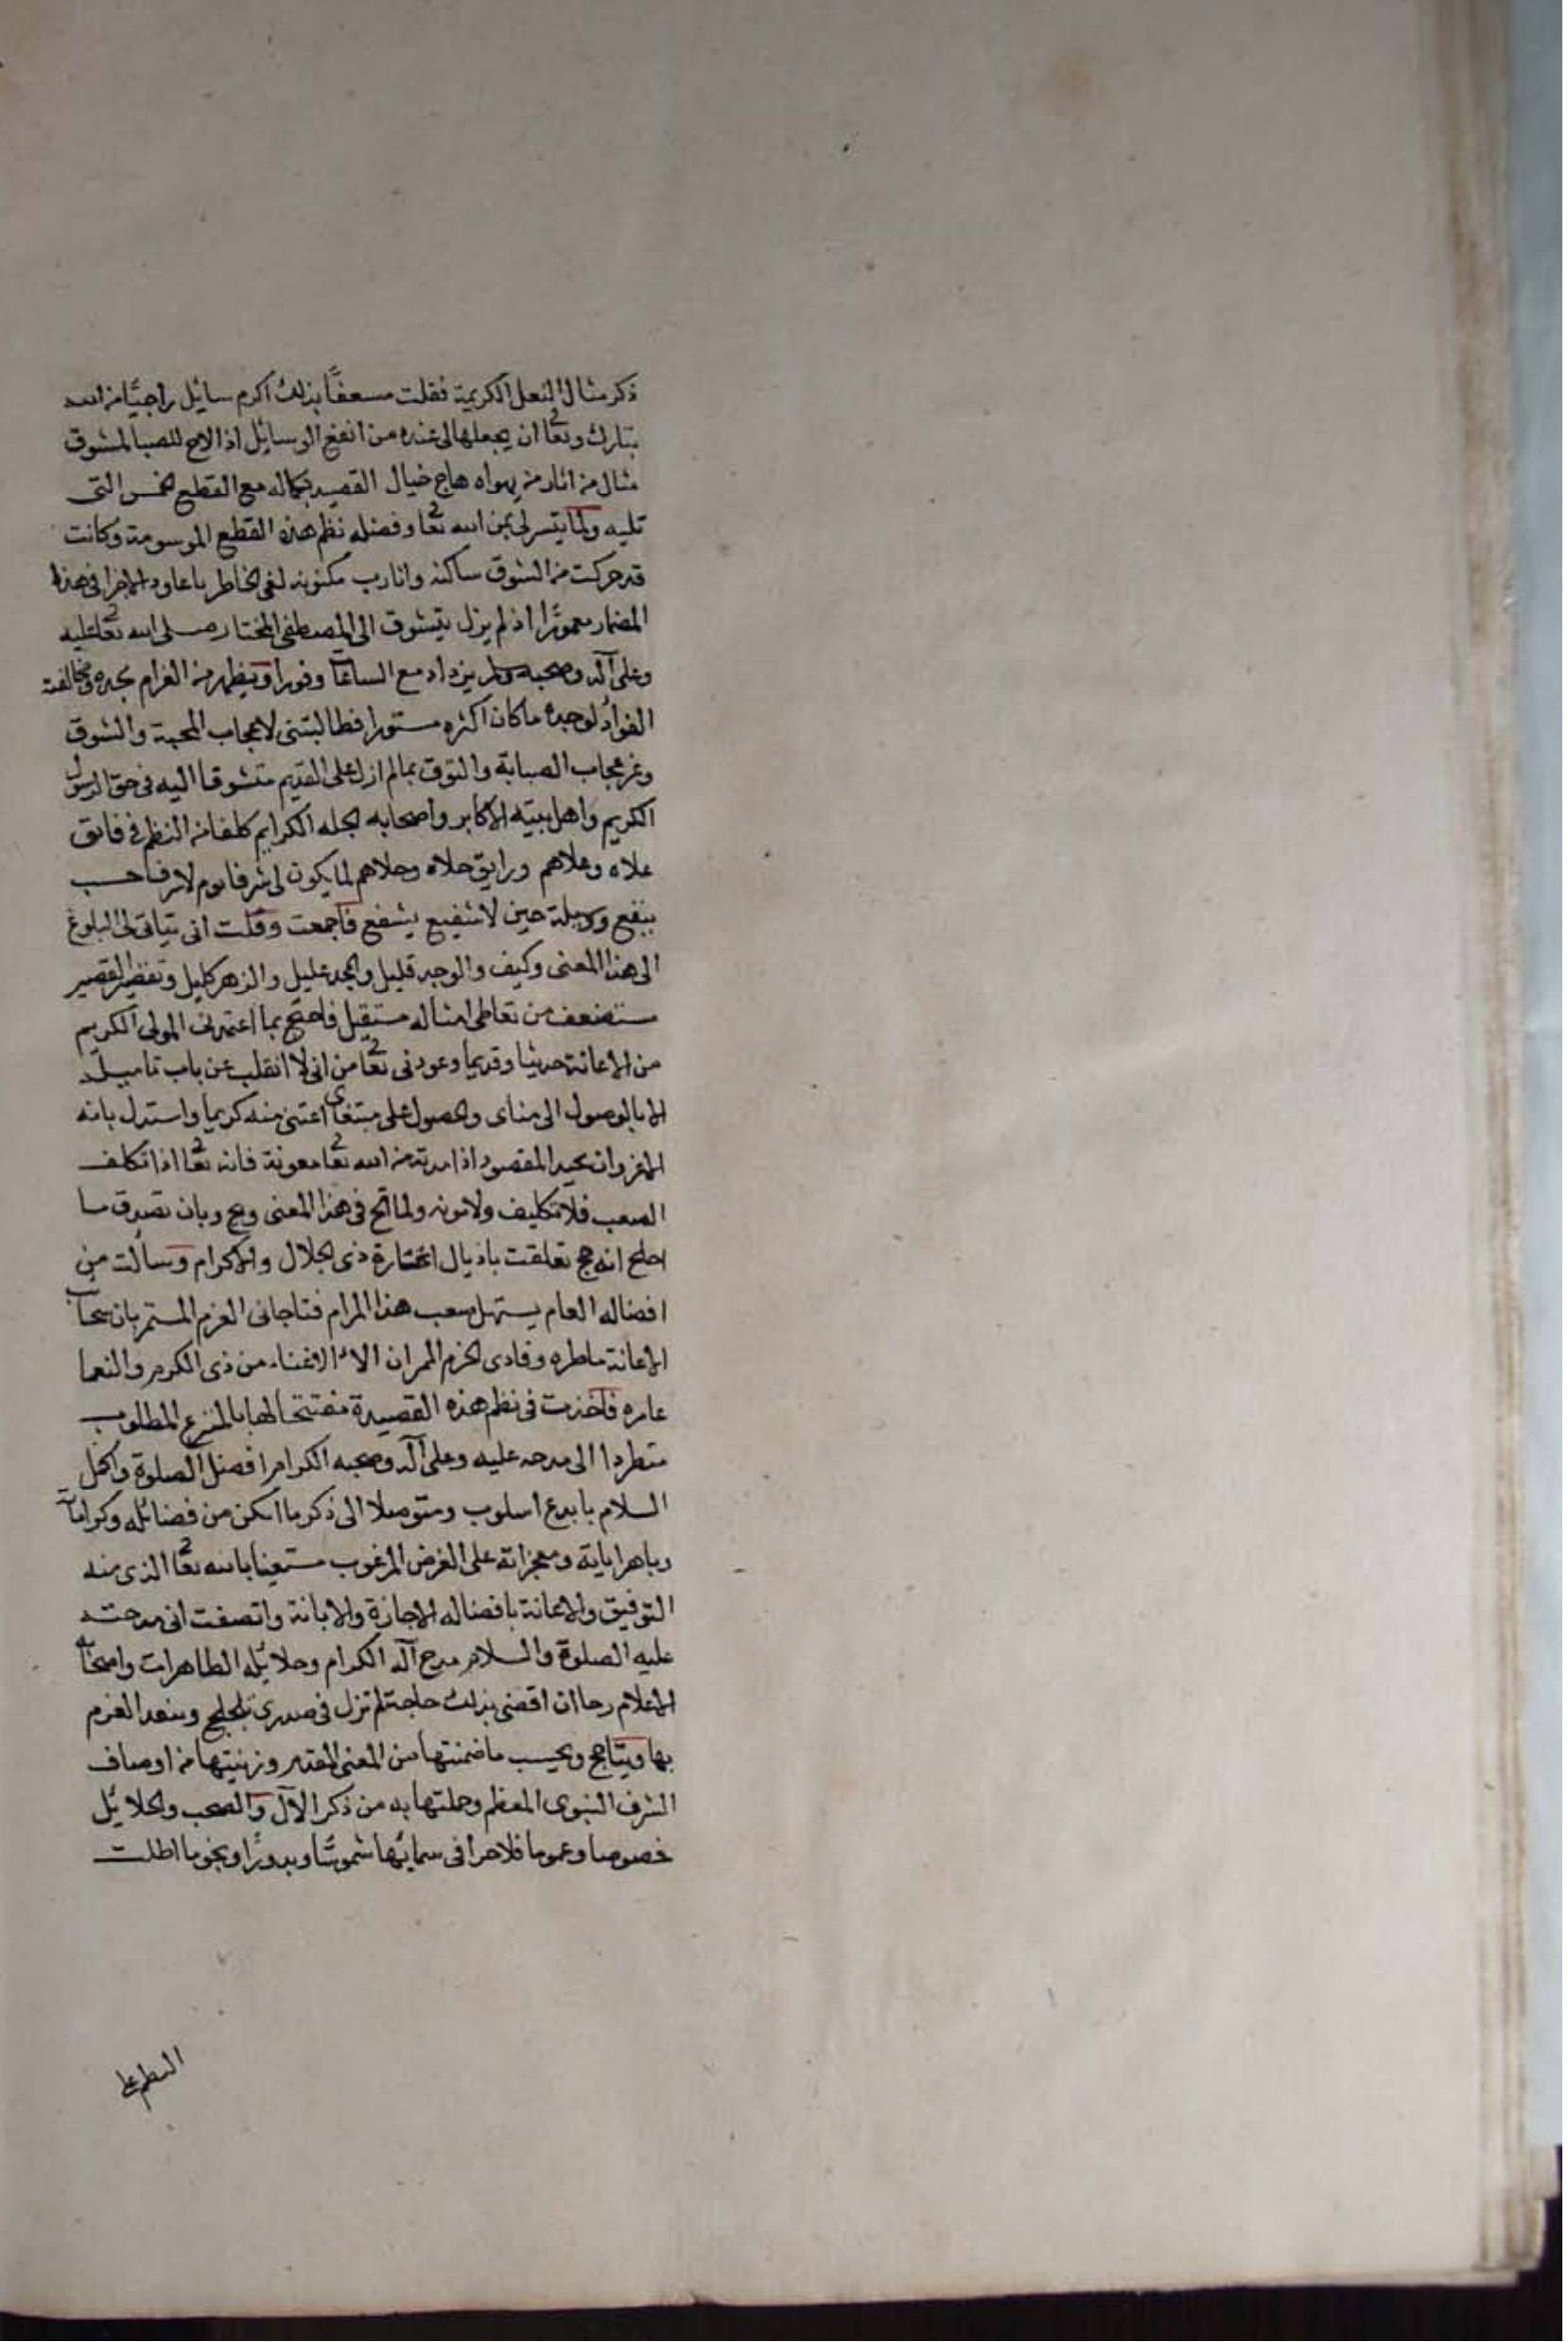 ذكر مثال النعل الكريمة فقلت مسعفًا بذلك اكرم سايل راجيًا من الله
تبارك وتعا ان يجعلها لى عنده من انفع الوسايل اذا لاح للصب المشوق
مثال من اثار من يهواه هاج خيال القصيد بكماله مع القطع الخمس التى
تليه ولما يتسر لى بمن الله تعا وفضله نظم هذه القطع الموسومة وكانت
قد حركت من الشوق ساكنه واثارت مكنونه لغى الخاطر با عاود الاخرا فى هذا
المضمار معمورًا اذ لم يزل يتشوق الى المصطفى المختار صلى الله تعا عليه
وعلى آله وصحبه ولم يزداد مع الساعات وفورا ويظهر من الغرام بجده ومخالفة
الفواد لوجده ما كان اكثره مستورا فطالبتنى لاعجاب المحبة والشوق
وغر عجاب الصبابة والتوق بما لم ازل على القديم متشوقا اليه فى حق الرسول
الكريم واهل بيته الاكابر واصحابه الجله الكرايم كلفا من النظم فى فايق
علاه وعلاهم ورايق حلاه وحلاهم لما يكون لى شرفا يوم لا شرفا حسب
ينفع ووسيلة حين لا شفيع يشفع فاجمعت وقلت انى يتياتى لى البلوغ
الى هذا المعنى وكيف والوجد قليل والجد عليل والذهر كليل وتقضير القصير
مستضعف من تعاطى امثاله مستقيل فاحتج بما اعتمدنى المولى الكريم
من الاعانة حديثا وقديما وعودنى تعا من انى لا انقلب عن باب تاميله
الا بالوصول الى مناى والحصول على مبتغاى اعتنى منه كريما واستدل بانه
المغزوان بحيد المقصود اذا مدته من الله تعا معونة فانه تعا اذا تكلف
الصعب فلا تكليف ولا مونه ولما اتج فى هذا المعنى وحج وبان تصدق ما
احلج انه حج تعلقت باذيال اختارة ذى الجلال والاكرام وسالت من
افضاله العام يستهل صعب هذا المرام فتاجانى العزم المستمر بان سحاب
الاعانة ماطره وفادى الحزم الممران الاء الاغناء من ذى الكرم والنعما
عامره فاخذت فى نظم هذه القصيدة مفتتحا لها بالمنزع المطلوب
متطردا الى مدحه عليه وعلى آله وصحبه الكرام افضل الصلوة واكمل
السلام بابدع اسلوب ومتوصلا الى ذكر ما امكن من فضائله وكراماته
وباهر اياته ومعجزاته على الغرض المرغوب مستعينا بالله تعا الذى منه
التوفيق والاعانة بافضاله الاجازة والابانة واتصفت انى مدحته
عليه الصلوة والسلام مدح آله الكرام وحلايله الطاهرات واصحابه
الاعلام رجا ان اقضى بذلك حاجة لم تزل فى صدرى تلجلج وسعد العزم
بها ويتاجج وبحسب ما ضمنتها من المعنى المقدم وزينتها من اوصاف
الشرف النبوى المعظم وحملتها به من ذكر الآل والصحب والحلايل
خصوصا وعموما فلاحرا فى سمايها شموسًا وبدورًا ونجوما اطلت
النظم على